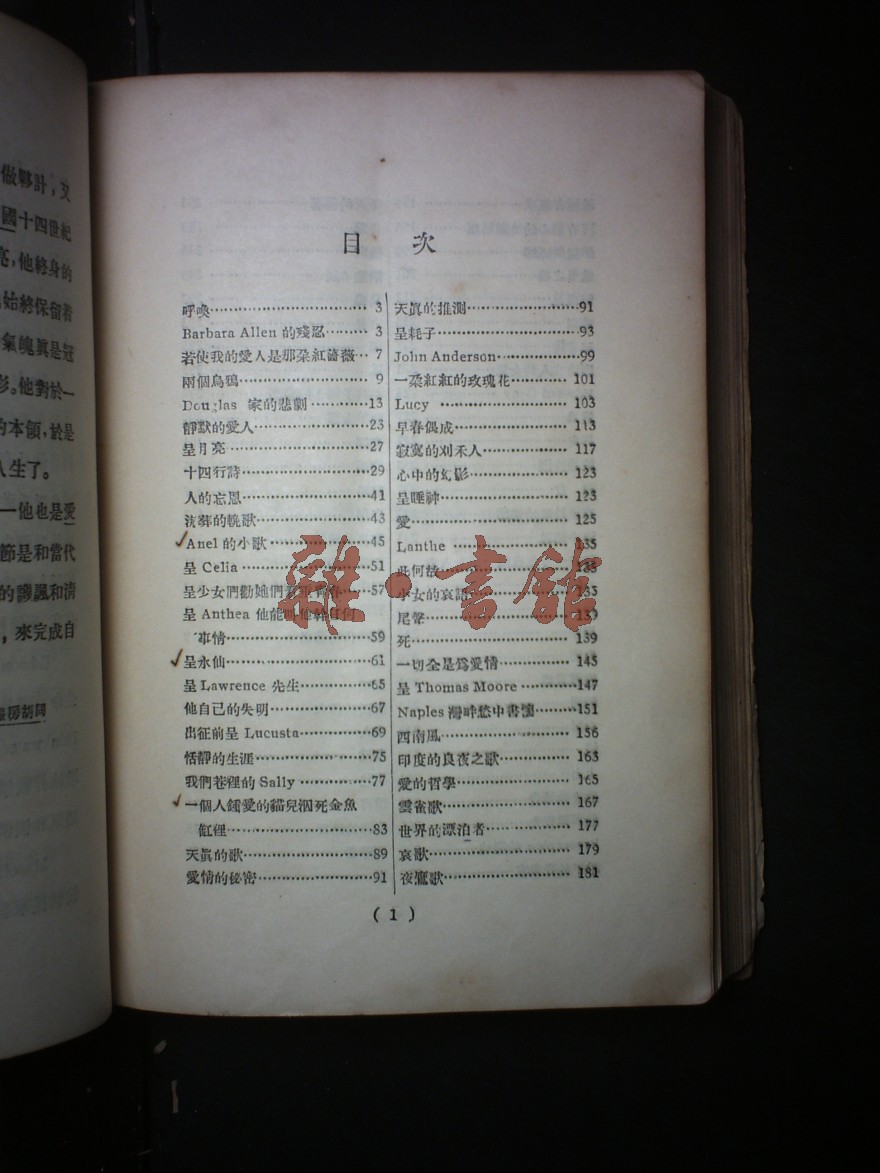 做夥計，又
國十四世紀
亮，他終身的
始終保留着
氣魄眞是冠
彩。他對於一
的本領，於是
人生了。
一他也是愛
節是和當代
的譏諷和清
，來完成自
目次
呼喚 3
Barbara Allen 的殘忍 3
若使我的愛人是那朵紅薔薇 7
兩個烏鴉 9
Douglas 家的悲劇 13
靜默的愛人 23
呈月亮 27
十四行詩 29
人的忘恩 41
海葬的輓歌 43
Anel 的小歌 45
呈 Celia 51
呈少女們勸她們 57
呈 Anthea 他能
事情 59
呈水仙 61
呈 Lawrence 先生 65
他自己的失明 67
出征前呈 Lucusta 69
恬靜的生涯 75
我們巷裡的 Sally 77
一個人鍾愛的貓兒溺死金魚
缸裡 83
天眞的歌 89
愛情的秘密 91
天眞的推測 91
呈耗子 93
John Anderson 99
一朵紅紅的玫瑰花 101
Lucy 103
早春偶成 113
寂寞的刈禾人 117
心中的幻影 123
呈睡神 123
愛 125
Lanthe 135
此何故 135
少女的哀語 135
尾聲 139
死 139
一切全是爲愛情 145
呈 Thomas Moore 147
Naples 灣畔愁中書懷 151
西南風 156
印度的良夜之歌 163
愛的哲學 165
雲雀歌 167
世界的漂泊者 177
哀歌 179
夜鶯歌 181
( 1 )
雜·書館